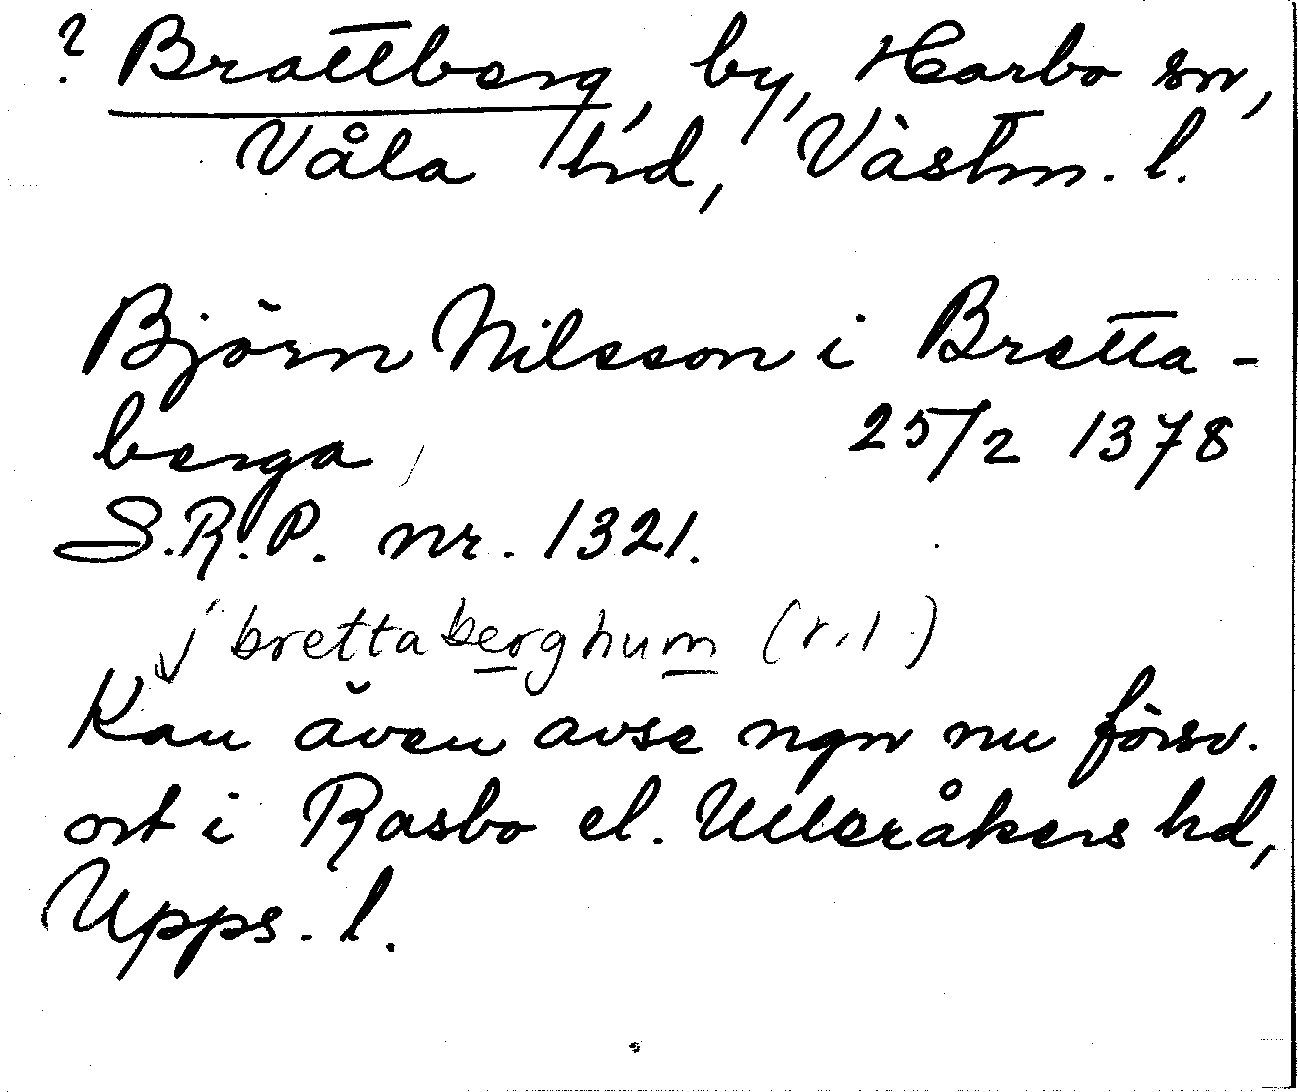 ? Brattberg, by, Harbo sn,
Våla hd, Västm. l.
Björn Nilsson i Bretta-
berga 25/2 1378
S.R.P. nr. 1321.
j brettaberghum (r.l.)
Kan även avse ngn nu försv.
ort i Rasbo el. Ulleråkers hd,
Upps. l.